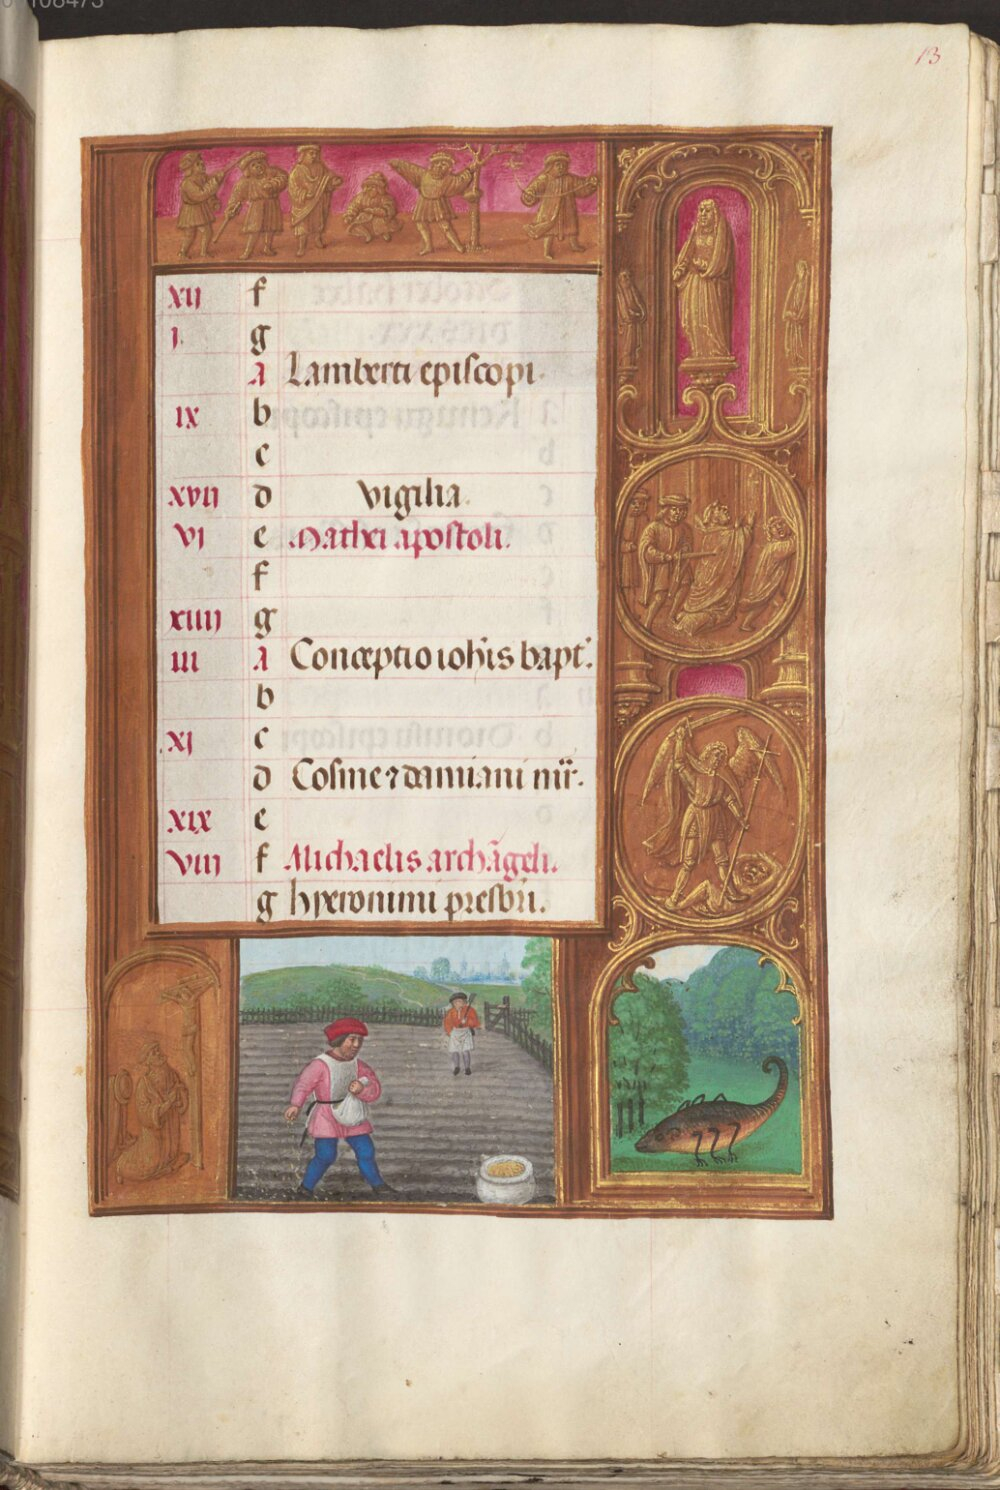 13
xii f
i. g
A Lamberti episcopi.
ix b
c
xvii d Vigilia.
vi e Mathei apostoli.
f
xiiii g
iii A Conceptio ioh̄is bapt̄.
b
xi c
d Cosme ⁊ damiani mr̄.
xix e
viii f Michaelis archāgeli.
g hyeronimi presbri.